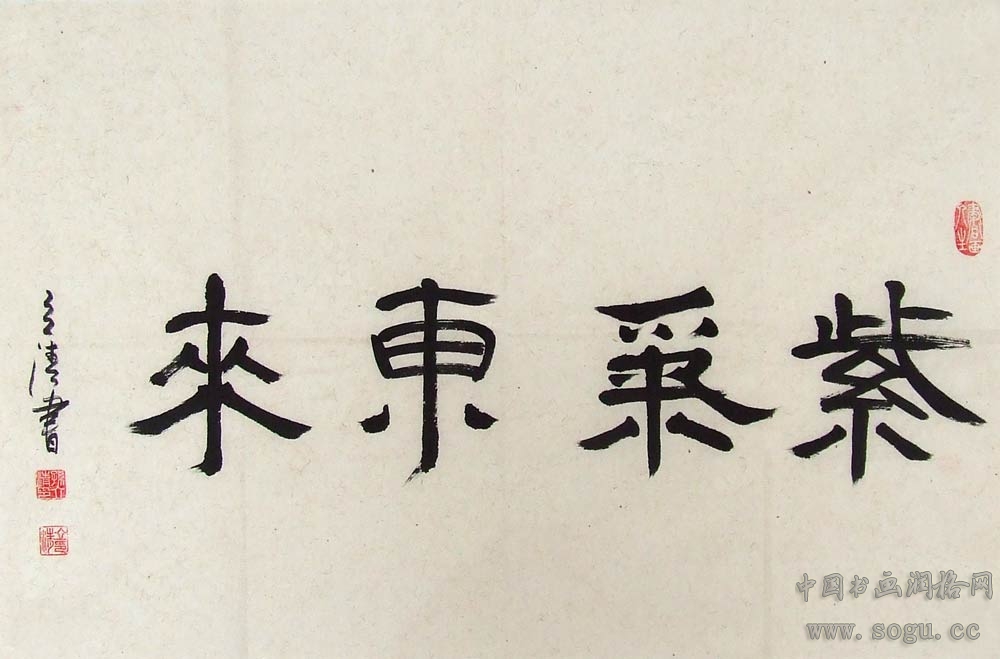 紫氣東來
立清書
中国书画润格网
www.sogu.cc